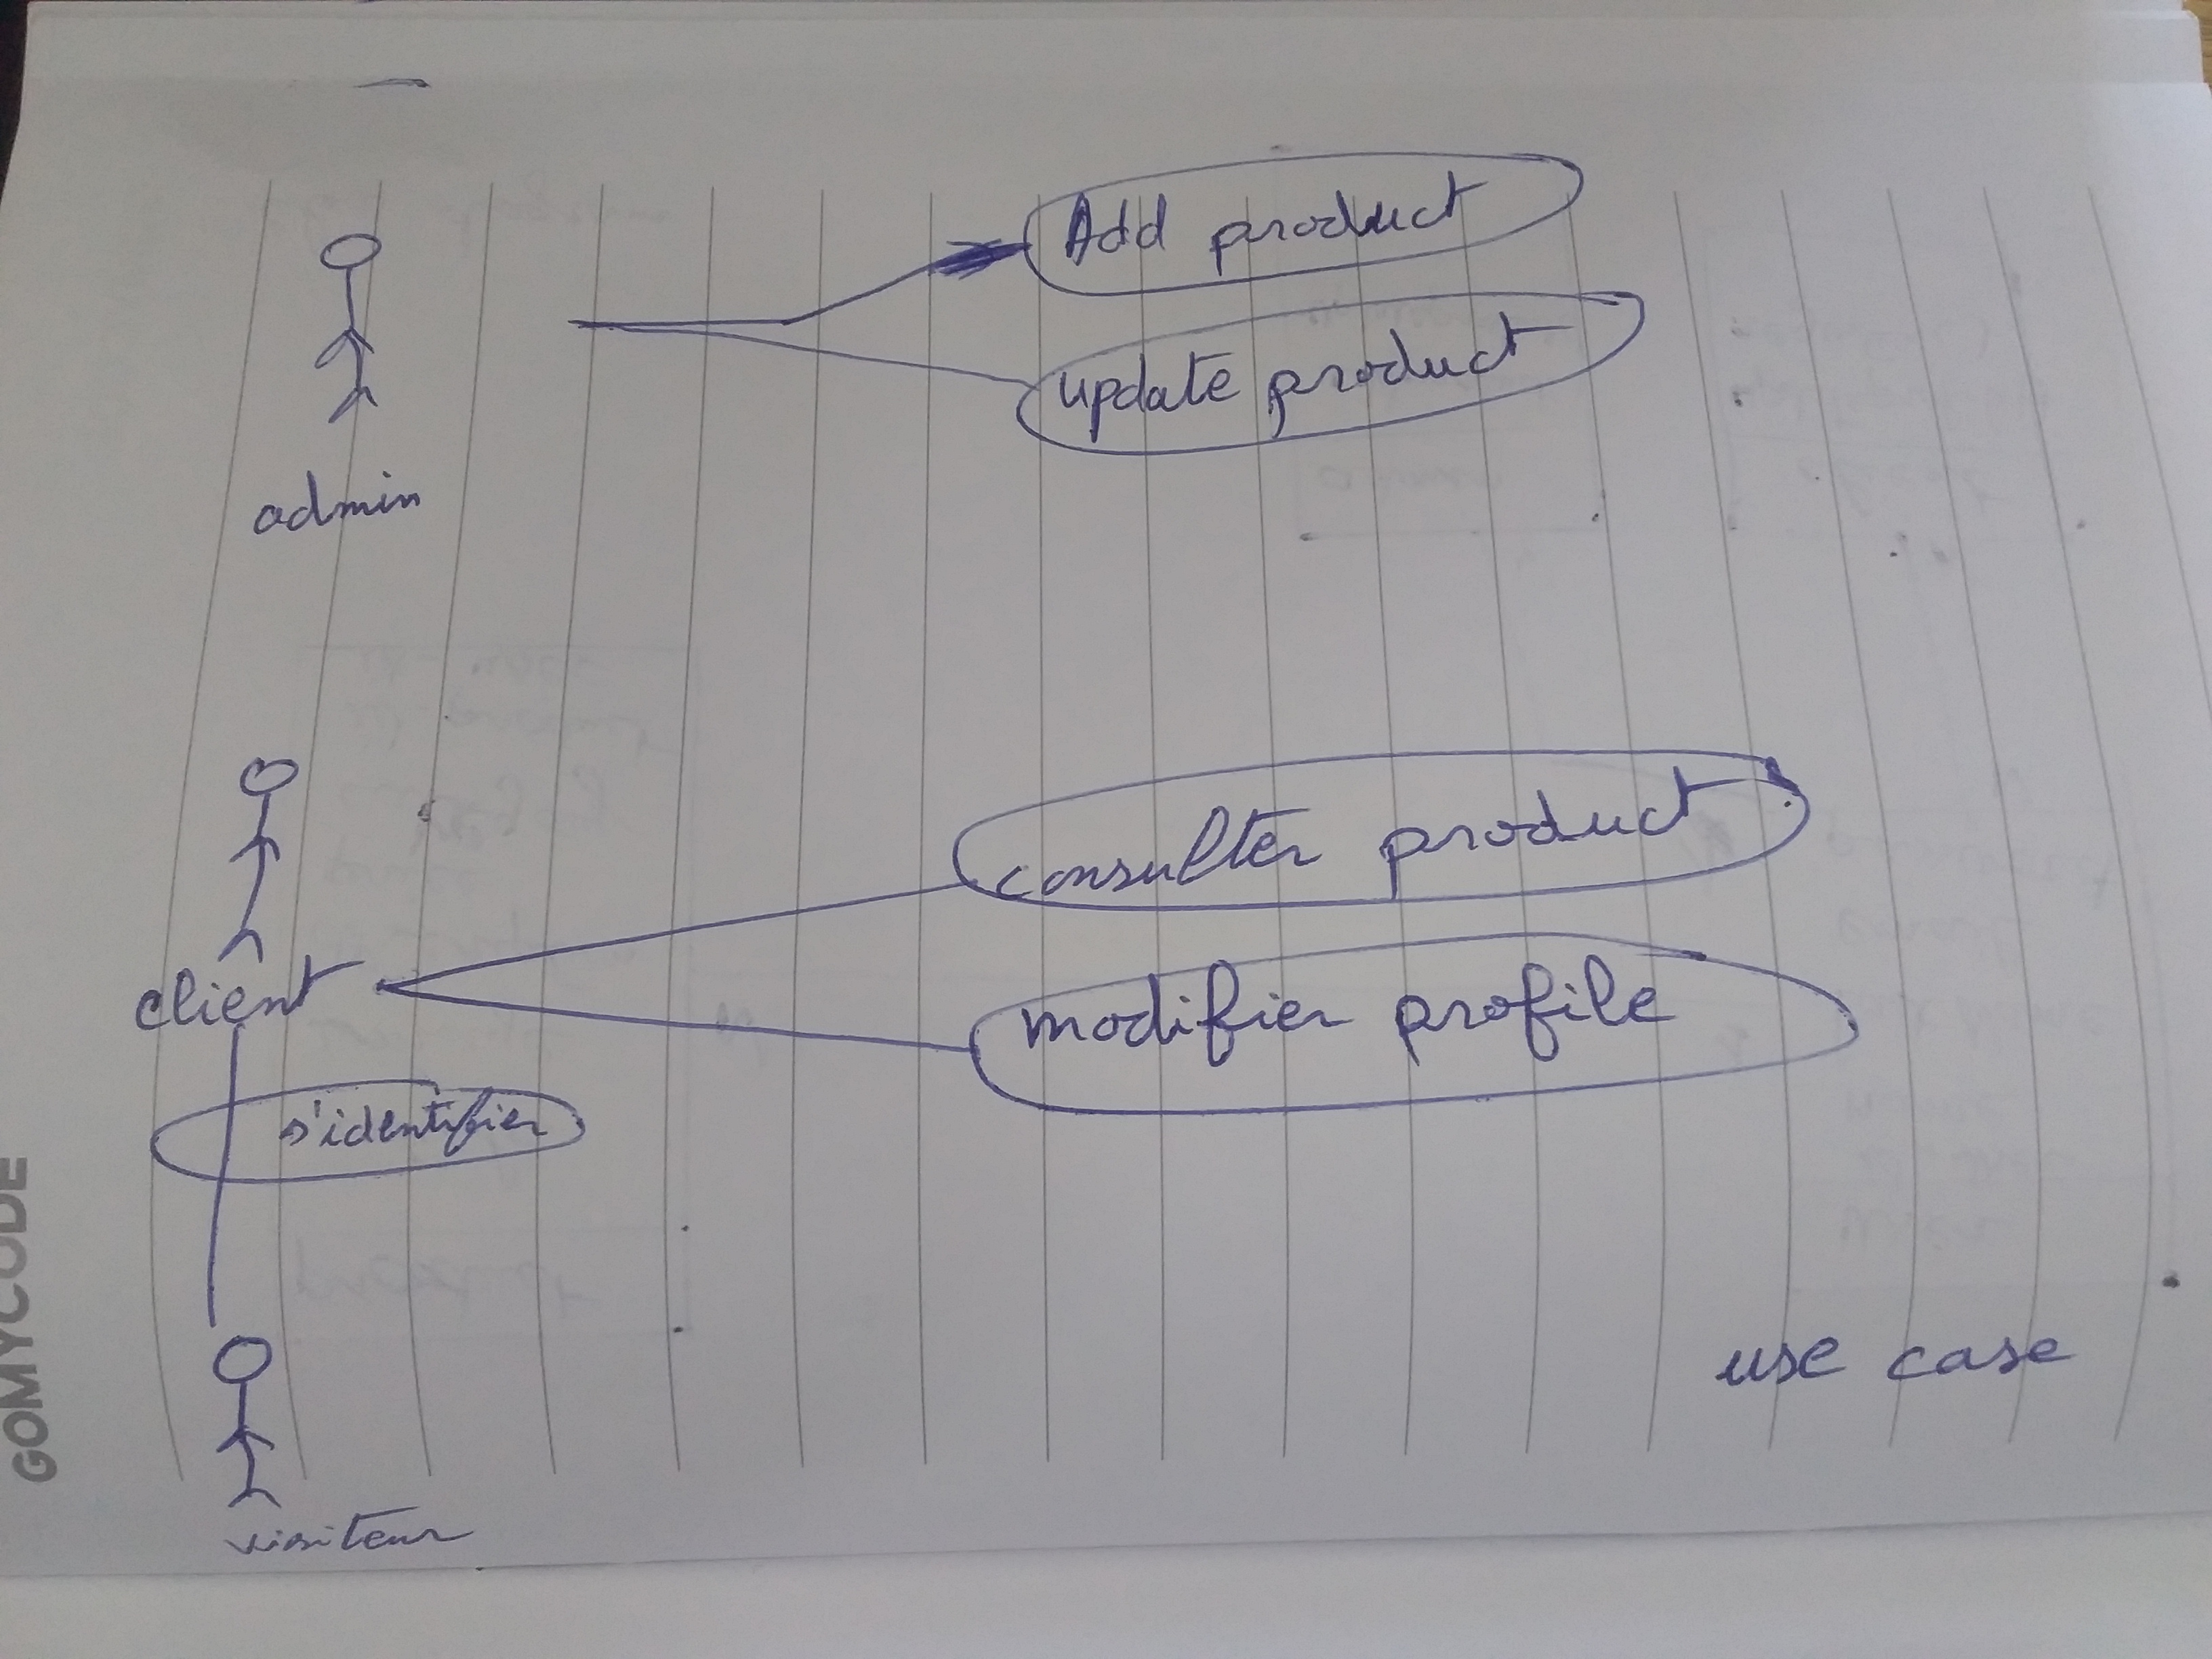 GOMYCODE
admin
Add product
update product
client
consulter product
modifier profile
s'identifier
visiteur
use case